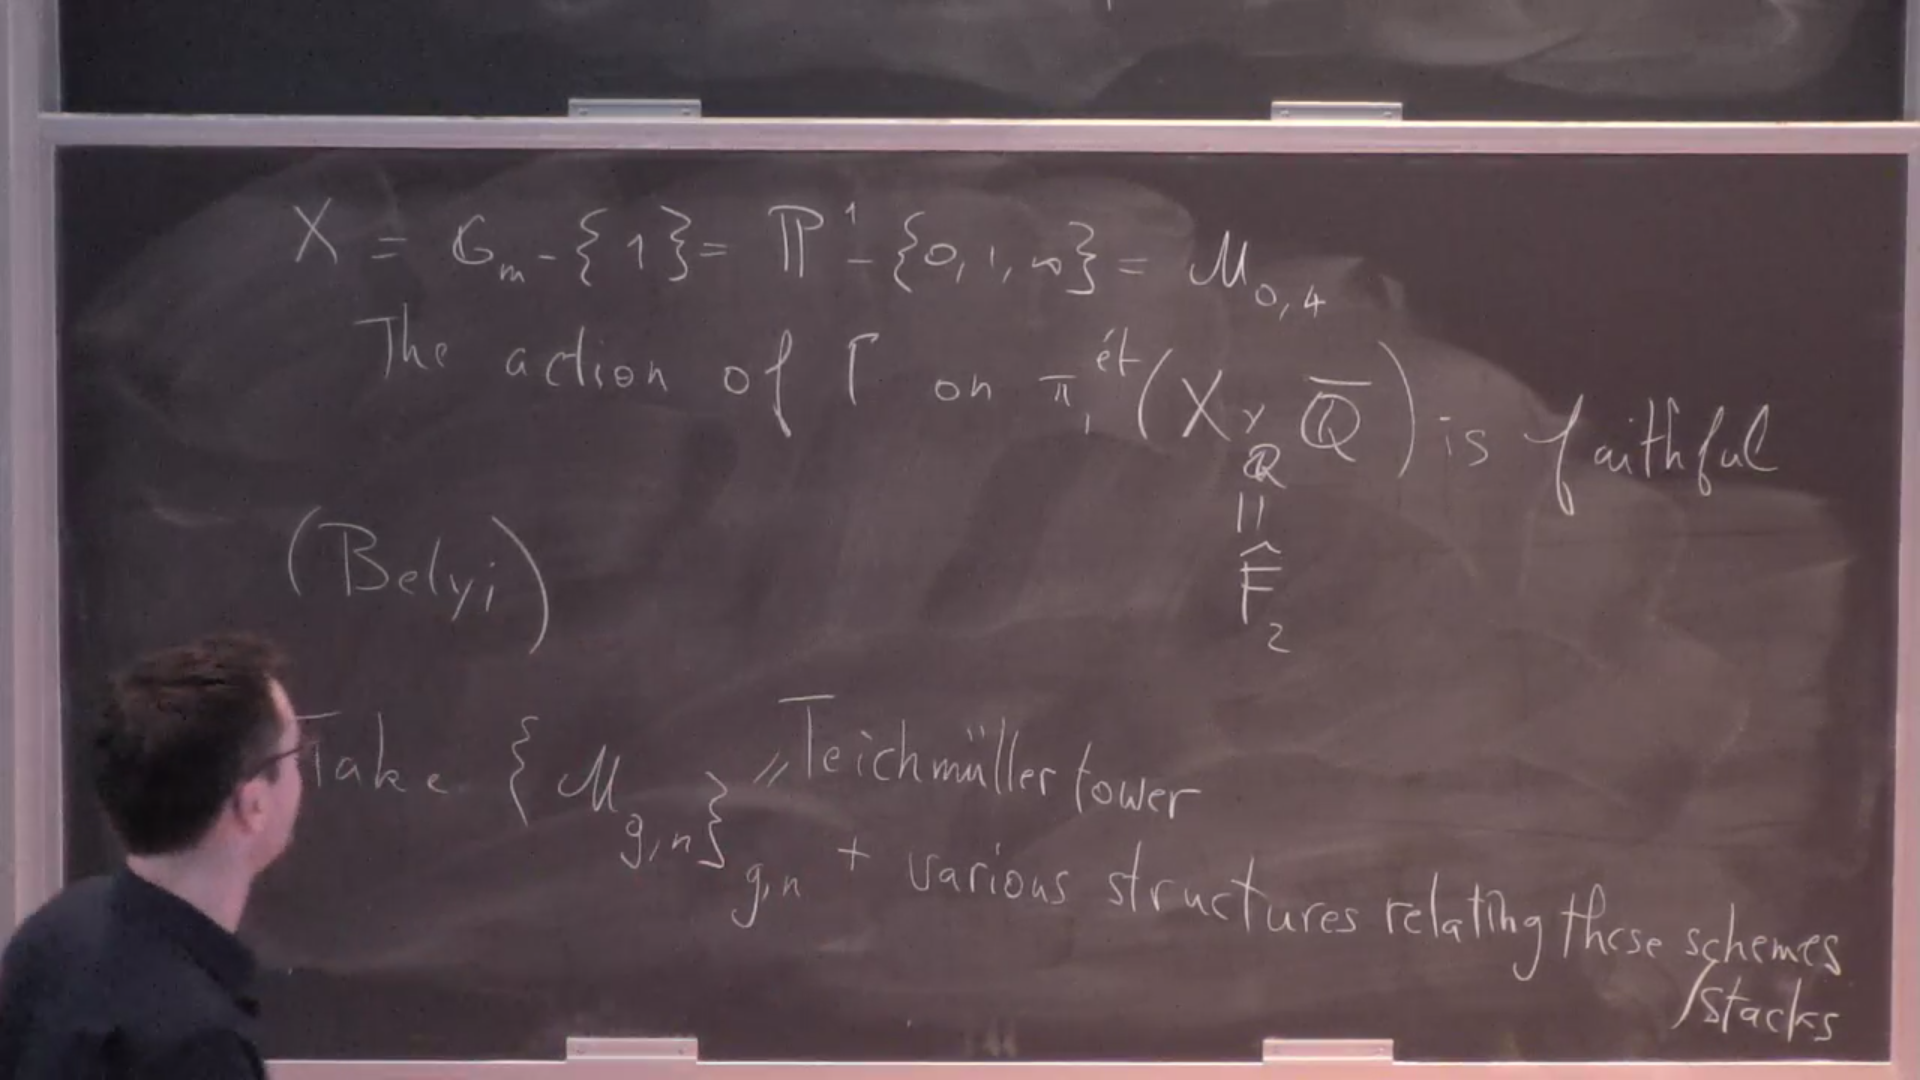 X = G_m - {1} = ℙ^1 - {0, 1, ∞} = M_{0,4}
The action of Γ on π_1^{ét}(X ×_ℚ ℚ̅) is faithful
||
F̂_2
(Belyi)
Take {M_{g,n}}_{g,n} "Teichmüller tower
+ various structures relating these schemes
/stacks